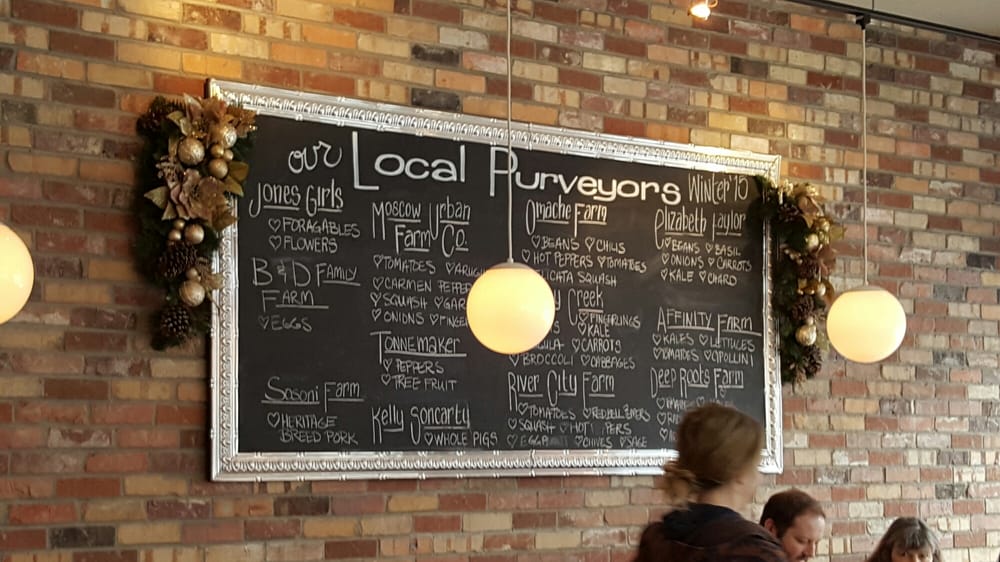 our Local Purveyors Winter '15
Jones Girls
♡ FORAGABLES
♡ FLOWERS
B & D FAMILY
FARM
♡ EGGS
Sosoni Farm
♡ HERITAGE
BREED PORK
Moscow Urban
Farm Co.
♡ TOMATOES ♡
♡ CARMEN PEPPER
♡ SQUASH ♡
♡ ONIONS ♡
TONNEMAKER
♡ PEPPERS
♡ TREE FRUIT
Kelly Soncarty
♡ WHOLE PIGS
Omache Farm
♡ BEANS ♡ CHILIS
♡ HOT PEPPERS ♡ TOMATOES
SQUASH
Creek
♡ FINGERLINGS
♡ KALE
♡ CARROTS
♡ BROCCOLI ♡ CABBAGES
River City Farm
♡ TOMATOES ♡ RED BELL PEPPERS
♡ SQUASH ♡ HOT
♡ CHIVES ♡ SAGE
Elizabeth Taylor
♡ BEANS ♡ BASIL
♡ ONIONS ♡ CARROTS
♡ KALE ♡ CHARD
AFFINITY FARM
♡ KALES ♡ LETTUCES
♡ TOMATOES ♡ CIPOLLINI
Deep Roots Farm